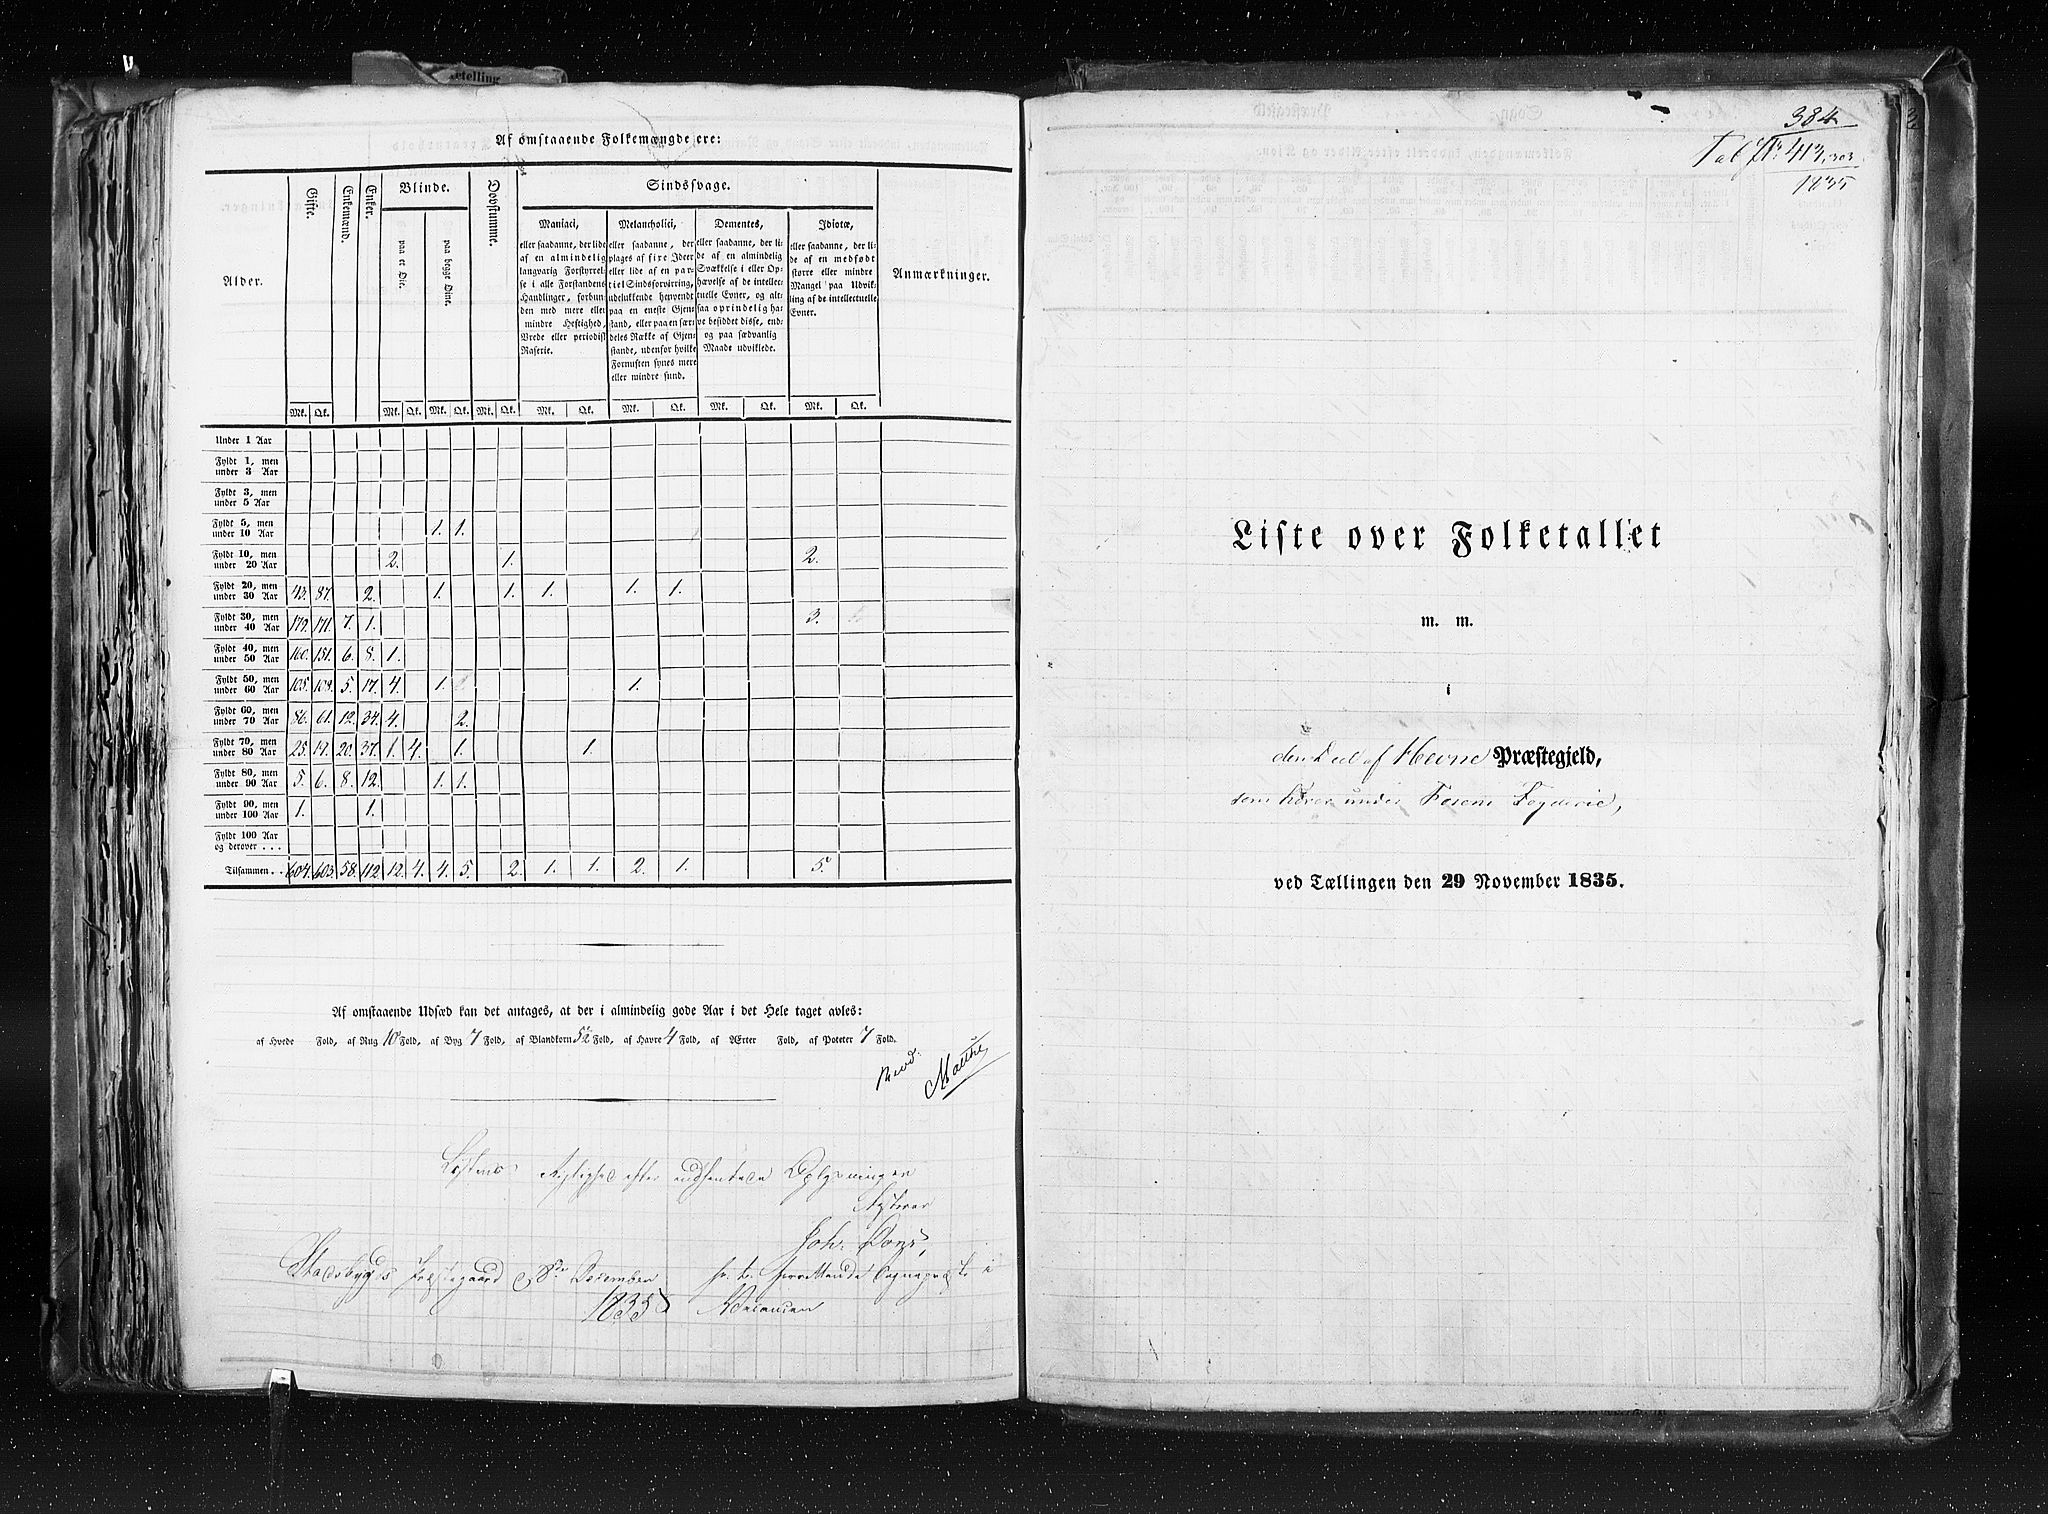 ketelling
Af omstaaende Folkemængde ere:
Alder.
Gifte.
Enkemænd.
Enker.
Blinde.
paa et Øie.
paa begge Øine.
Døvstumme.
Sindssvage.
Maniaci,
eller saadanne, der lide
af en almindelig
langvarig Forstyrrel-
se i alle Forstandens
Handlinger, forbun-
den med mere eller
mindre Heftighed,
Vrede eller periodisk
Raserie.
Melancholici,
eller saadanne, der
plages af fixe Ideer
eller lide af en par-
tiel Sindsforvirring,
udelukkende henvendt
paa en eneste Gjen-
stand, eller paa en sær-
deles Række af Gjen-
stande, udenfor hvilke
Fornuften synes mere
eller mindre sund.
Dementes,
eller saadanne, der li-
de af en almindelig
Svækkelse i eller Op-
hævelse af de intellec-
tuelle Evner, og alt-
saa oprindelig ha-
ve besiddet disse, end-
og paa sædvanlig
Maade udviklede.
Idiotæ,
eller saadanne, der li-
de af en medfødt
større eller mindre
Mangel paa Udvik-
ling af de intellectuelle
Evner.
Anmærkninger.
Mk. Qk. Mk. Qk. Mk. Qk. Mk. Qk. Mk. Qk. Mk. Qk. Mk. Qk. Mk. Qk.
Under 1 Aar
Fyldt 1, men
under 3 Aar
Fyldt 3, men
under 5 Aar
Fyldt 5, men
under 10 Aar 1. 1.
Fyldt 10, men
under 20 Aar 2. 1. 2.
Fyldt 20, men
under 30 Aar 43. 87. 2. 1. 1. 1. 1. 1.
Fyldt 30, men
under 40 Aar 179. 171. 7. 1. 3.
Fyldt 40, men
under 50 Aar 160. 151. 6. 8. 1.
Fyldt 50, men
under 60 Aar 105. 108. 5. 17. 4. 1. 1.
Fyldt 60, men
under 70 Aar 86. 61. 12. 34. 4. 2.
Fyldt 70, men
under 80 Aar 25. 19. 20. 37. 1. 4. 1. 1.
Fyldt 80, men
under 90 Aar 5. 6. 8. 12. 1. 1.
Fyldt 90, men
under 100 Aar 1. 1.
Fyldt 100 Aar
og derover . . .
Tilsammen . . 604. 603. 58. 112. 12. 4. 4. 5. 2. 1. 1. 2. 1. 5.
Af omstaaende Udsæd kan det antages, at der i almindelig gode Aar i det Hele taget avles:
af Hvede Fold, af Rug 10 Fold, af Byg 7 Fold, af Blandkorn 5½ Fold, af Havre 4 Fold, af Ærter Fold, af Poteter 7 Fold.
Revd.
Malthe
Listens Rigtighed efter indhentede Oplysninger
Attesterer
Joh:
Stadsbygds Præstegaard December
1835
384
Tab N: 413, 303
1835
Liste over Folketallet
m. m.
i
den Deel af Hevne Præstegjeld,
som hører under Fosens Fogderie,
ved Tællingen den 29 November 1835.